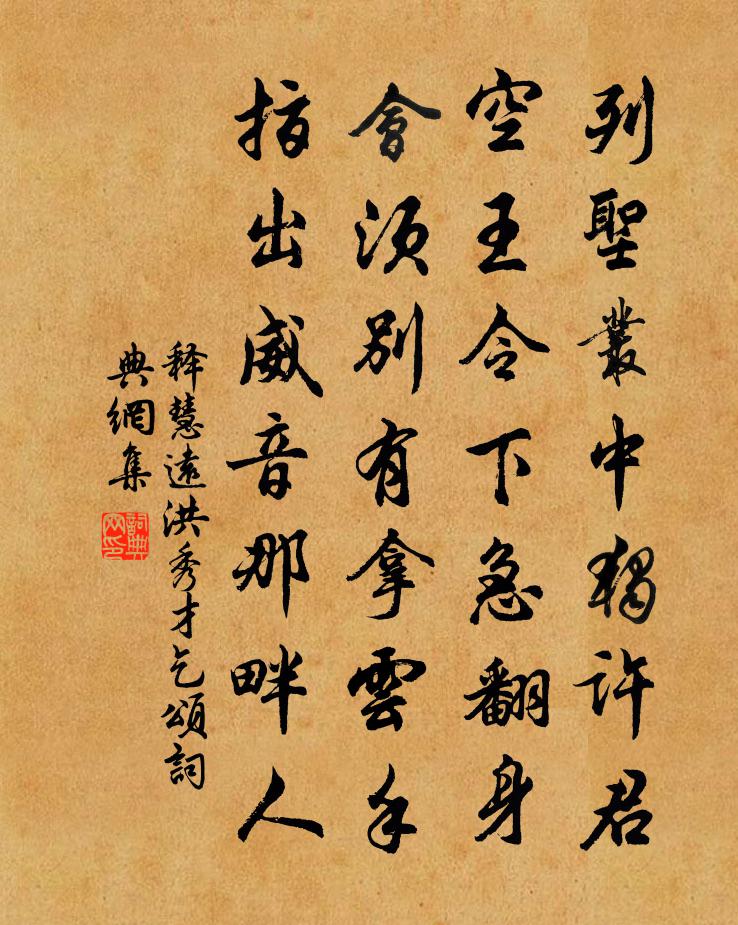 列聖叢中獨許君
空王令下急翻身
會須別有拿雲手
指出威音那畔人
释慧遠洪秀才乞頌詞
典網集
詞典
网印